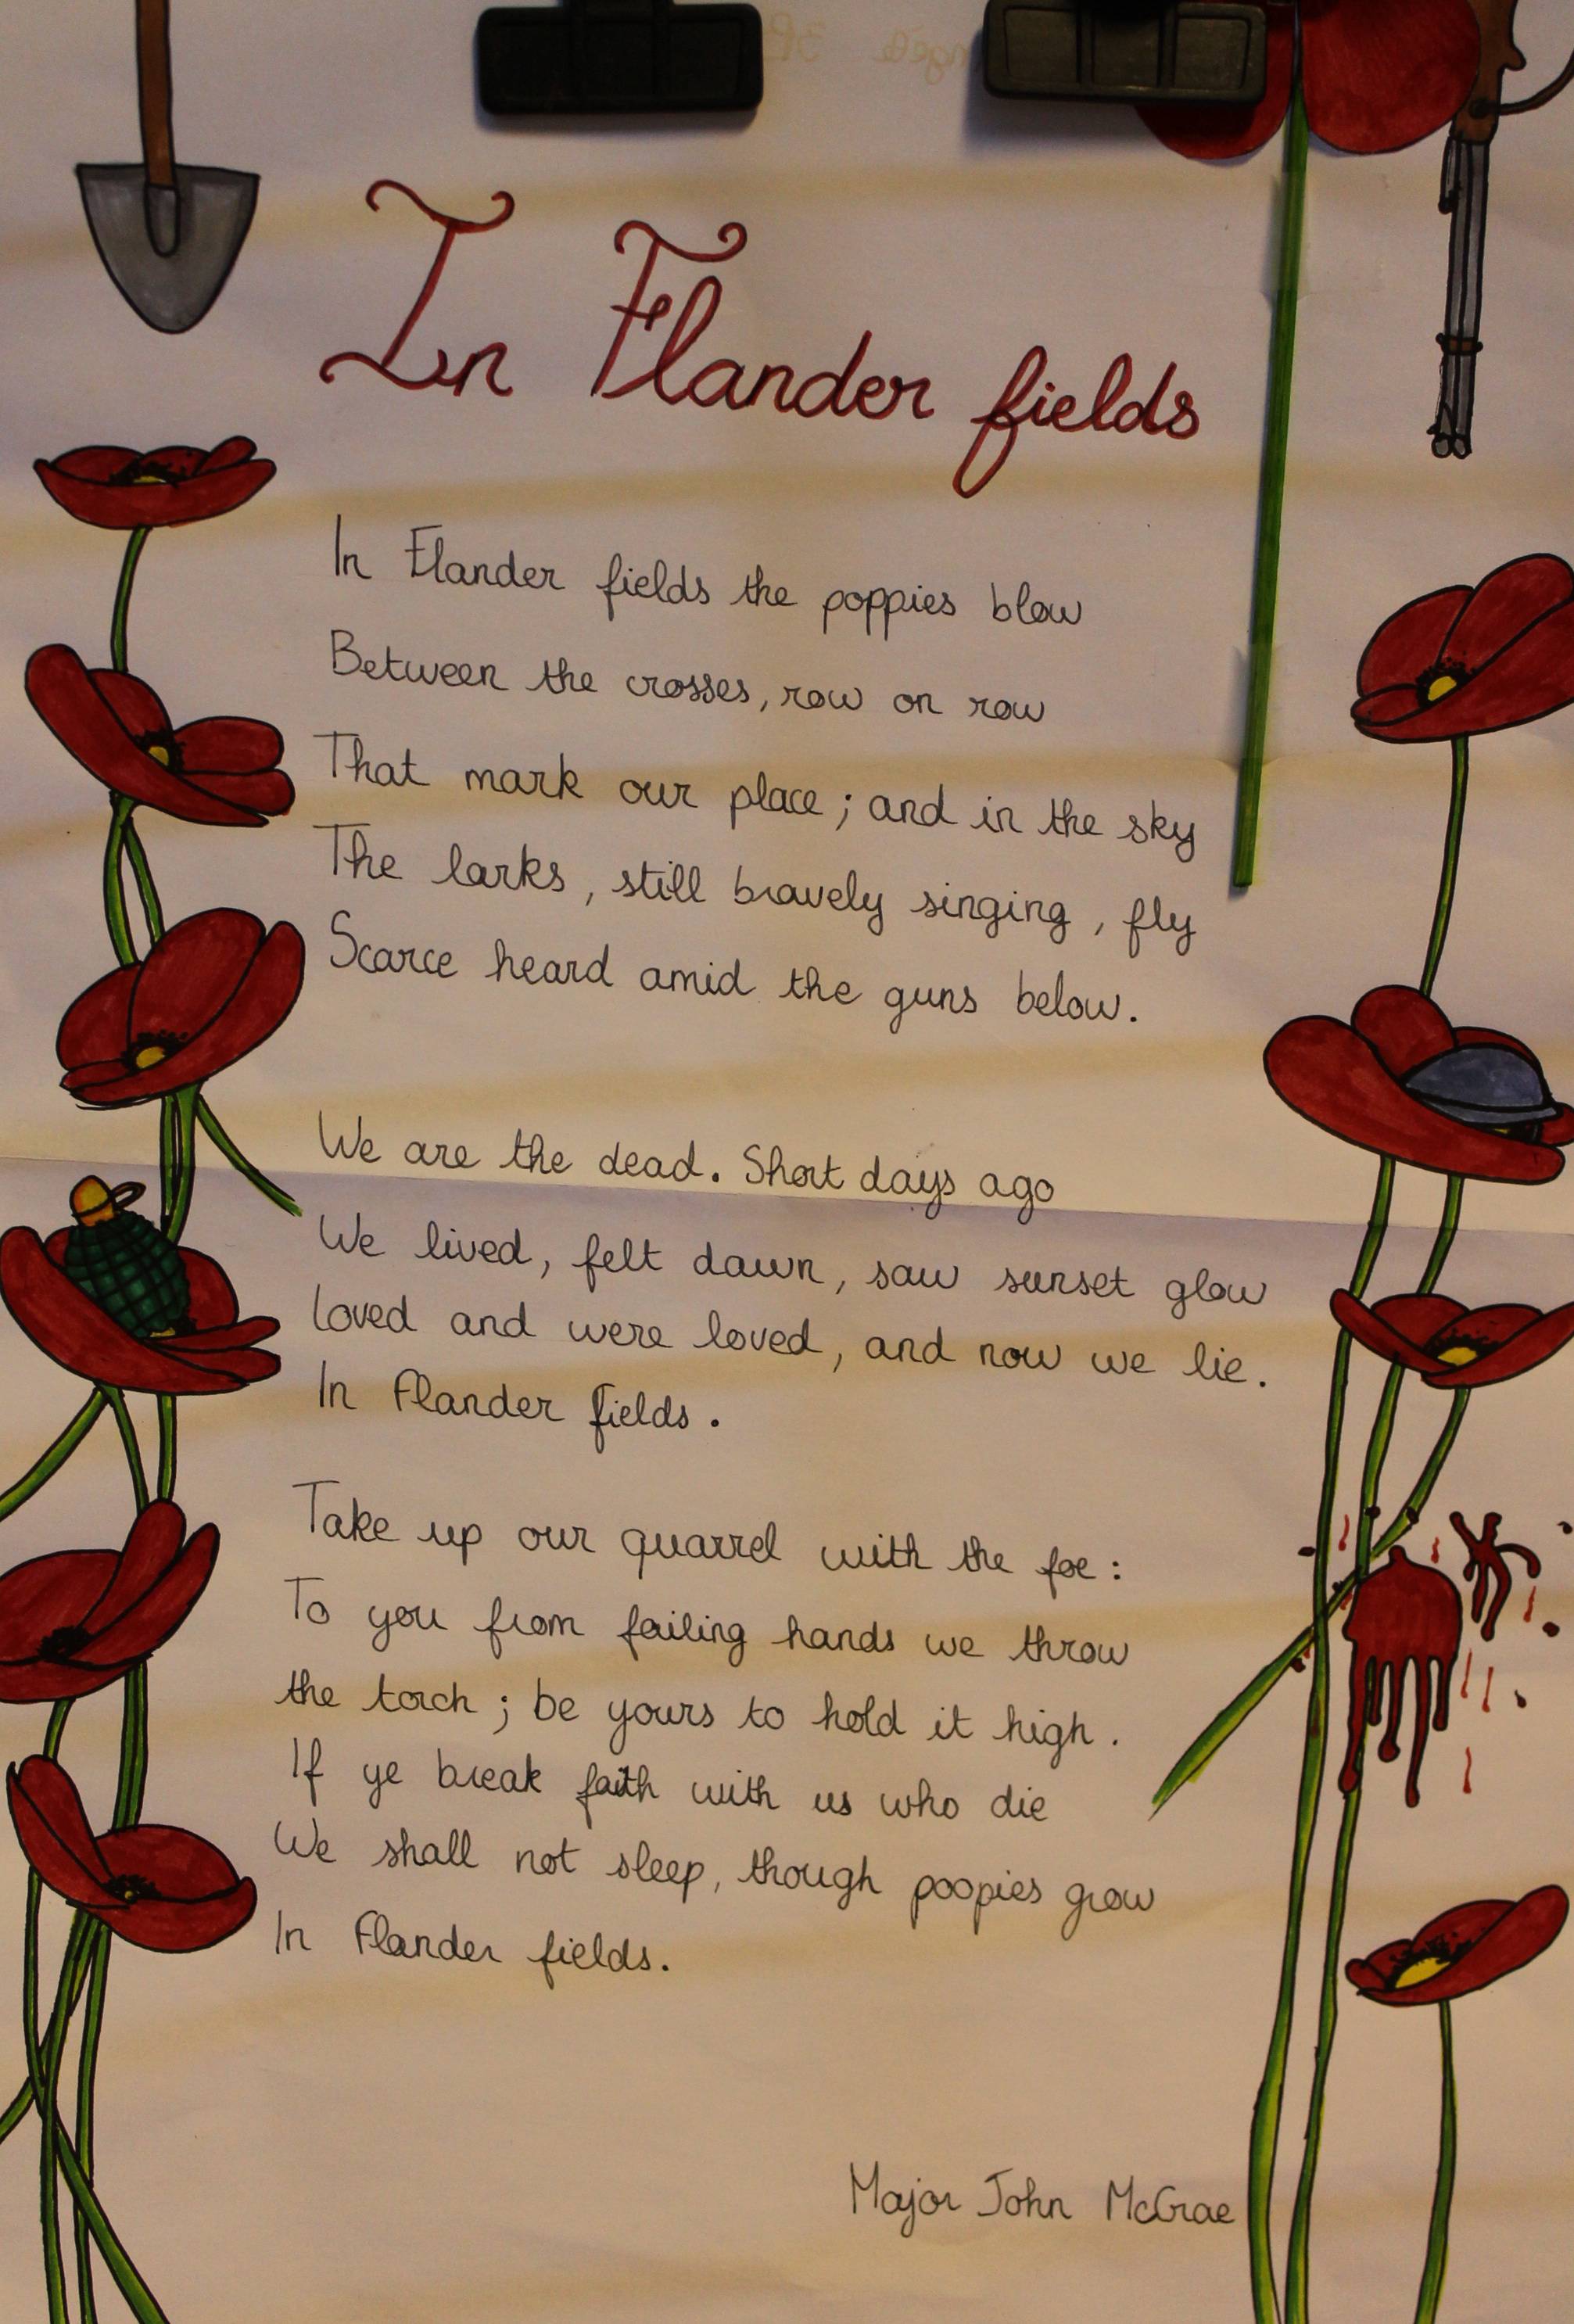 In Flander fields
In Flander fields the poppies blow
Between the crosses, row on row
That mark our place; and in the sky
The larks, still bravely singing, fly
Scarce heard amid the guns below.
We are the dead. Short days ago
We lived, felt dawn, saw sunset glow
Loved and were loved, and now we lie.
In Flander fields.
Take up our quarrel with the foe:
To you from failing hands we throw
the torch; be yours to hold it high.
If ye break faith with us who die
We shall not sleep, though poopies grow
In Flander fields.
Major John McCrae